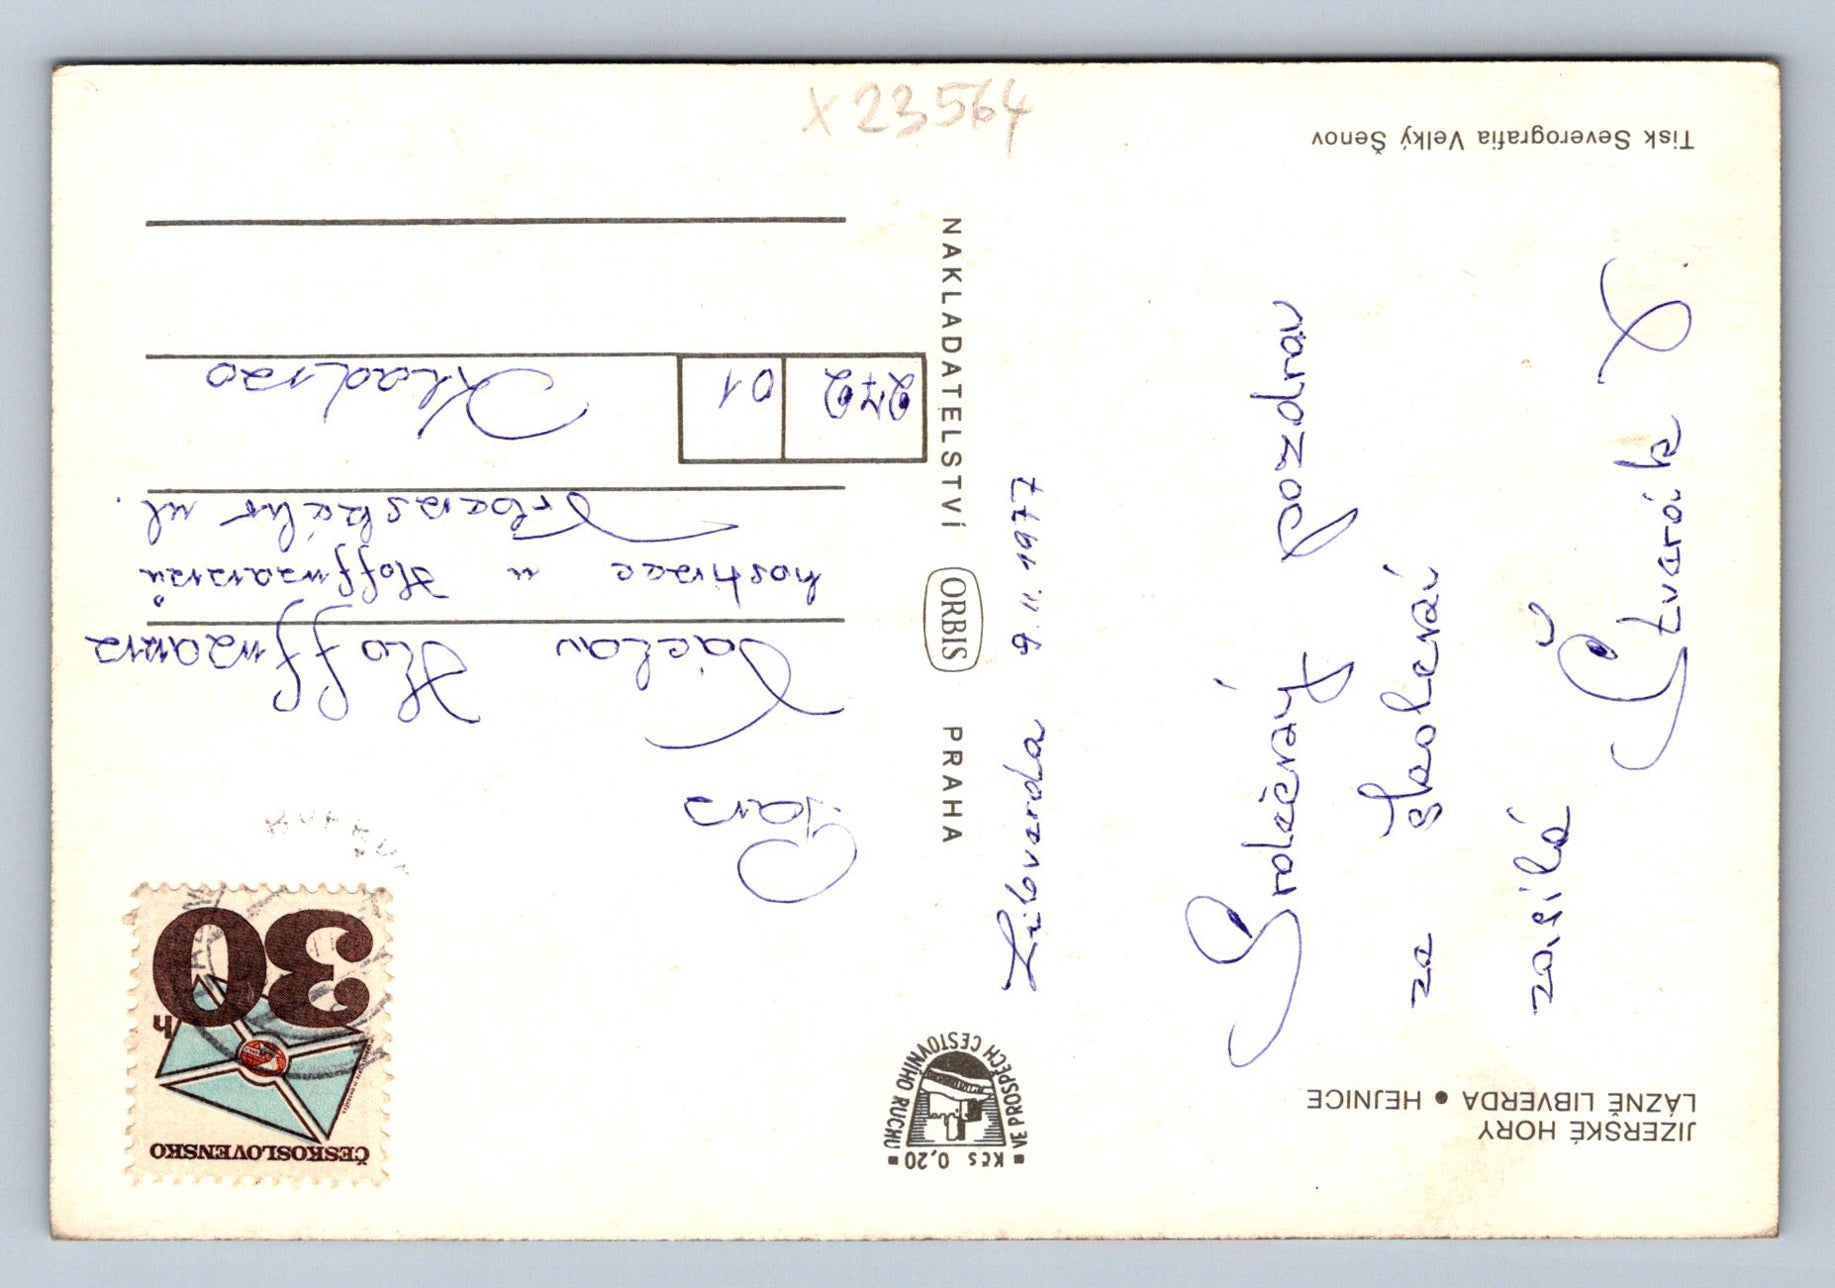 JIZERSKÉ HORY
LÁZNĚ LIBVERDA • HEJNICE
Libverda 9. 11. 1977
Srdečný pozdrav
ze školení
zasílá
Čtveráčk S.
Tisk Severografia Velký Šenov
■ Kčs 0,20 ■
VE PROSPĚCH CESTOVNÍHO RUCHU
NAKLADATELSTVÍ ORBIS PRAHA
ČESKOSLOVENSKO
30
h
Pan
Václav Hoffmann
hostinec u Hoffmannů
Vrbenského ul.
272 01 Kladno
X 23564